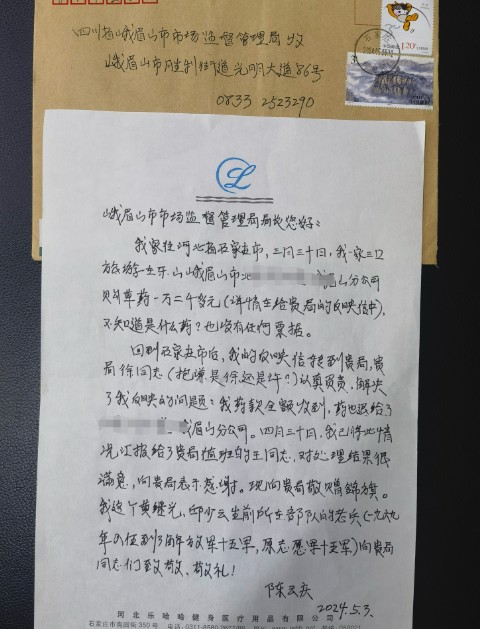 四川省峨眉山市市场监督管理局 收
峨眉山市胜利街道光明大道86号
0833 2523290
中国邮政
1.20元
L
峨眉山市市场监督管理局局长您好：
我家住河北省石家庄市，三月三十日，我一家三口
旅游一在 山峨眉山市 山分公司
购草药一万二千多元（详情在给贵局的反映信中），
不知道是什么药？也没有任何票据。
回到石家庄市后，我的反映信转到贵局，贵
局徐同志（抱歉是徐还是许？）认真负责，解决
了我反映的问题：我药款全额收到，药也退给了
峨眉山分公司。四月三十日，我已将此情
况汇报给了贵局值班的王同志，对处理结果很
满意，向贵局表示感谢。现向贵局敬赠锦旗。
我这个黄继光、邱少云生前所在部队的老兵（一九六九
年入伍到 军十五军，原志愿军十五军）向贵局
同志们致敬、敬礼！
陈云庆
2024.5.3.
河北乐哈哈健身医疗用品有限公司
石家庄市高园街350号 电话：0311-8580